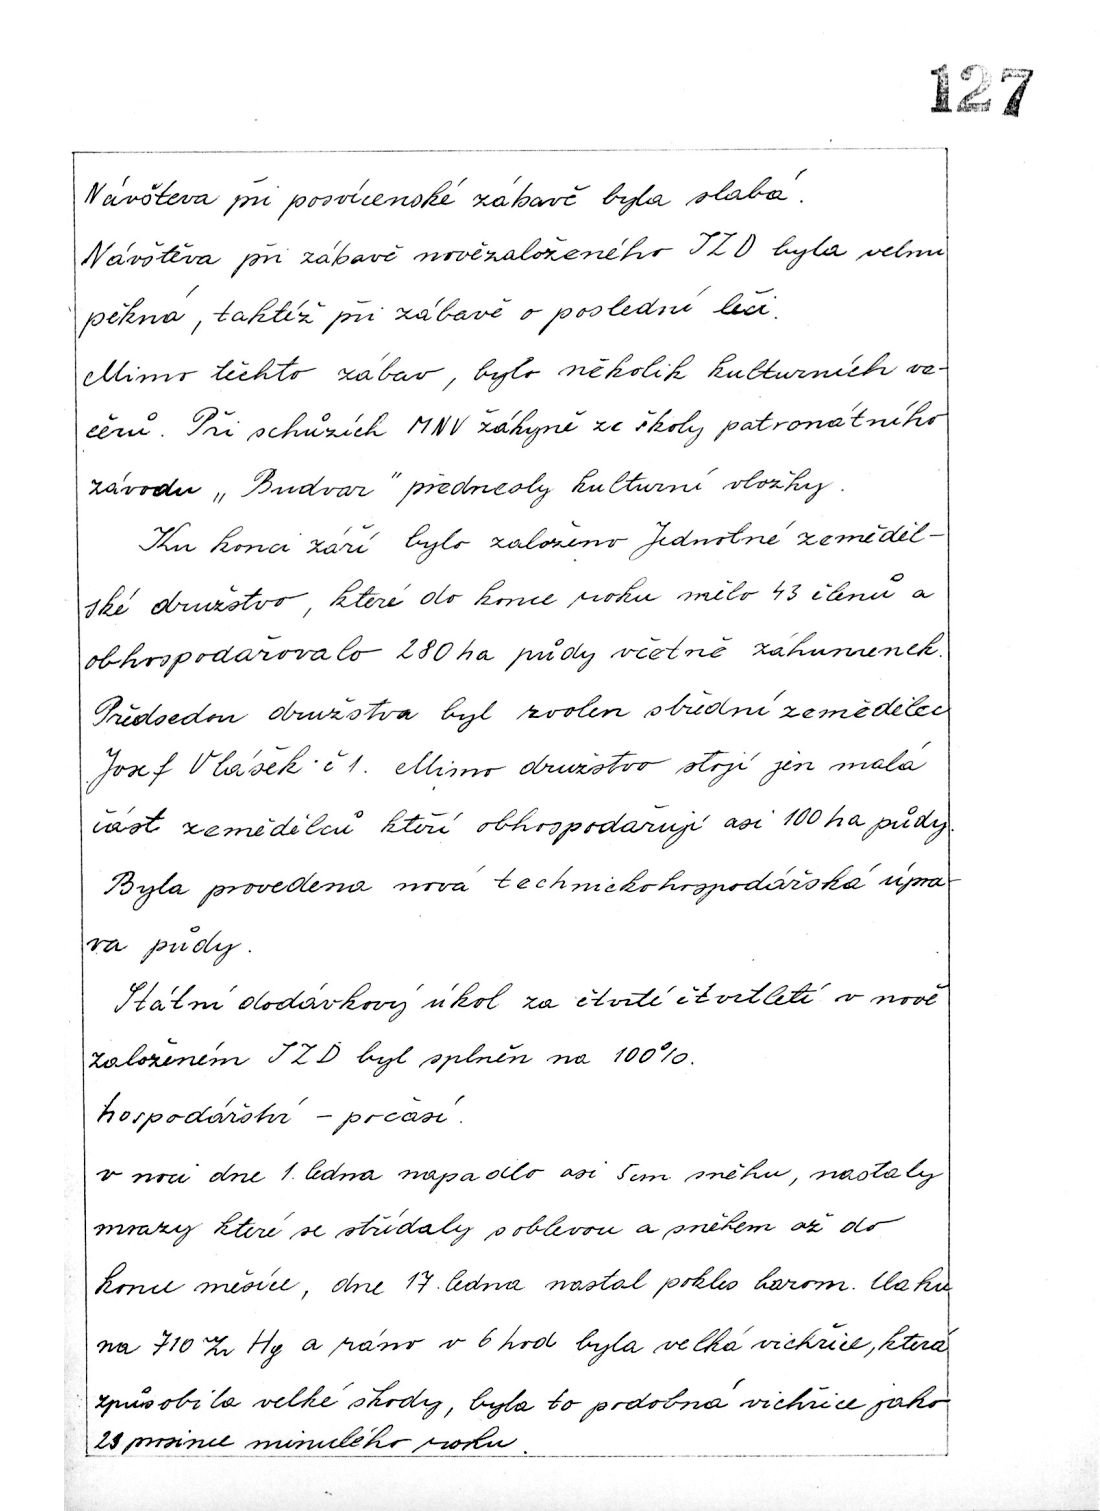 127
Návšteva při posvícenské zábavě byla slabá.
Návštěva při zábavě novězaloženého JZD byla velmi
pěkná, taktéž při zábavě o poslední leči.
Mimo těchto zábav, bylo několik kulturních ve-
čerů. Při schůzích MNV žákyně ze školy patronátního
závodu „Budvar" přednesly kulturní vložky.
Ku konci září bylo založeno Jednotné zeměděl-
ské družstvo, které do konce roku mělo 43 členů a
obhospodařovalo 280 ha půdy včetně záhumenek.
Předsedou družstva byl zvolen střední zemědělec
Josef Vlášek č 1. Mimo družstvo stojí jen malá
část zemědělců kteří obhospodařují asi 100 ha půdy.
Byla provedena nová technickohospodářská úpra-
va půdy.
Státní dodávkový úkol za čtvrté čtvrtletí v nově
založeném JZD byl splněn na 100%.
hospodářství – počasí.
v noci dne 1. ledna napadlo asi 5cm sněhu, nastaly
mrazy které se střídaly s oblevou a sněhem až do
konce měsíce, dne 17. ledna nastal pokles barom. tlaku
na 710 Hg a ráno v 6 hod byla velká vichřice, která
způsobila velké škody, byla to podobná vichřice jako
23 prosince minulého roku.